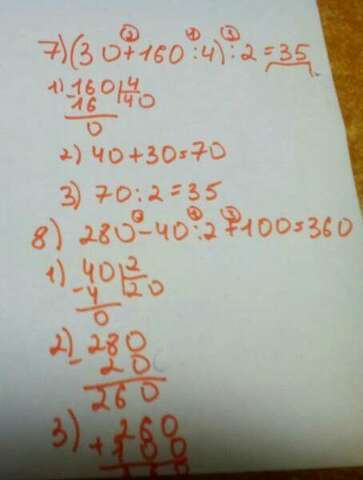 ② ① ③
7) (30+160:4):2=35
1) 160 4
-16 40
0
2) 40+30=70
3) 70:2=35
② ① ③
8) 280-40:2+100=360
1) 40 2
-4 20
0
2) -280
20
260
3) 260
+100